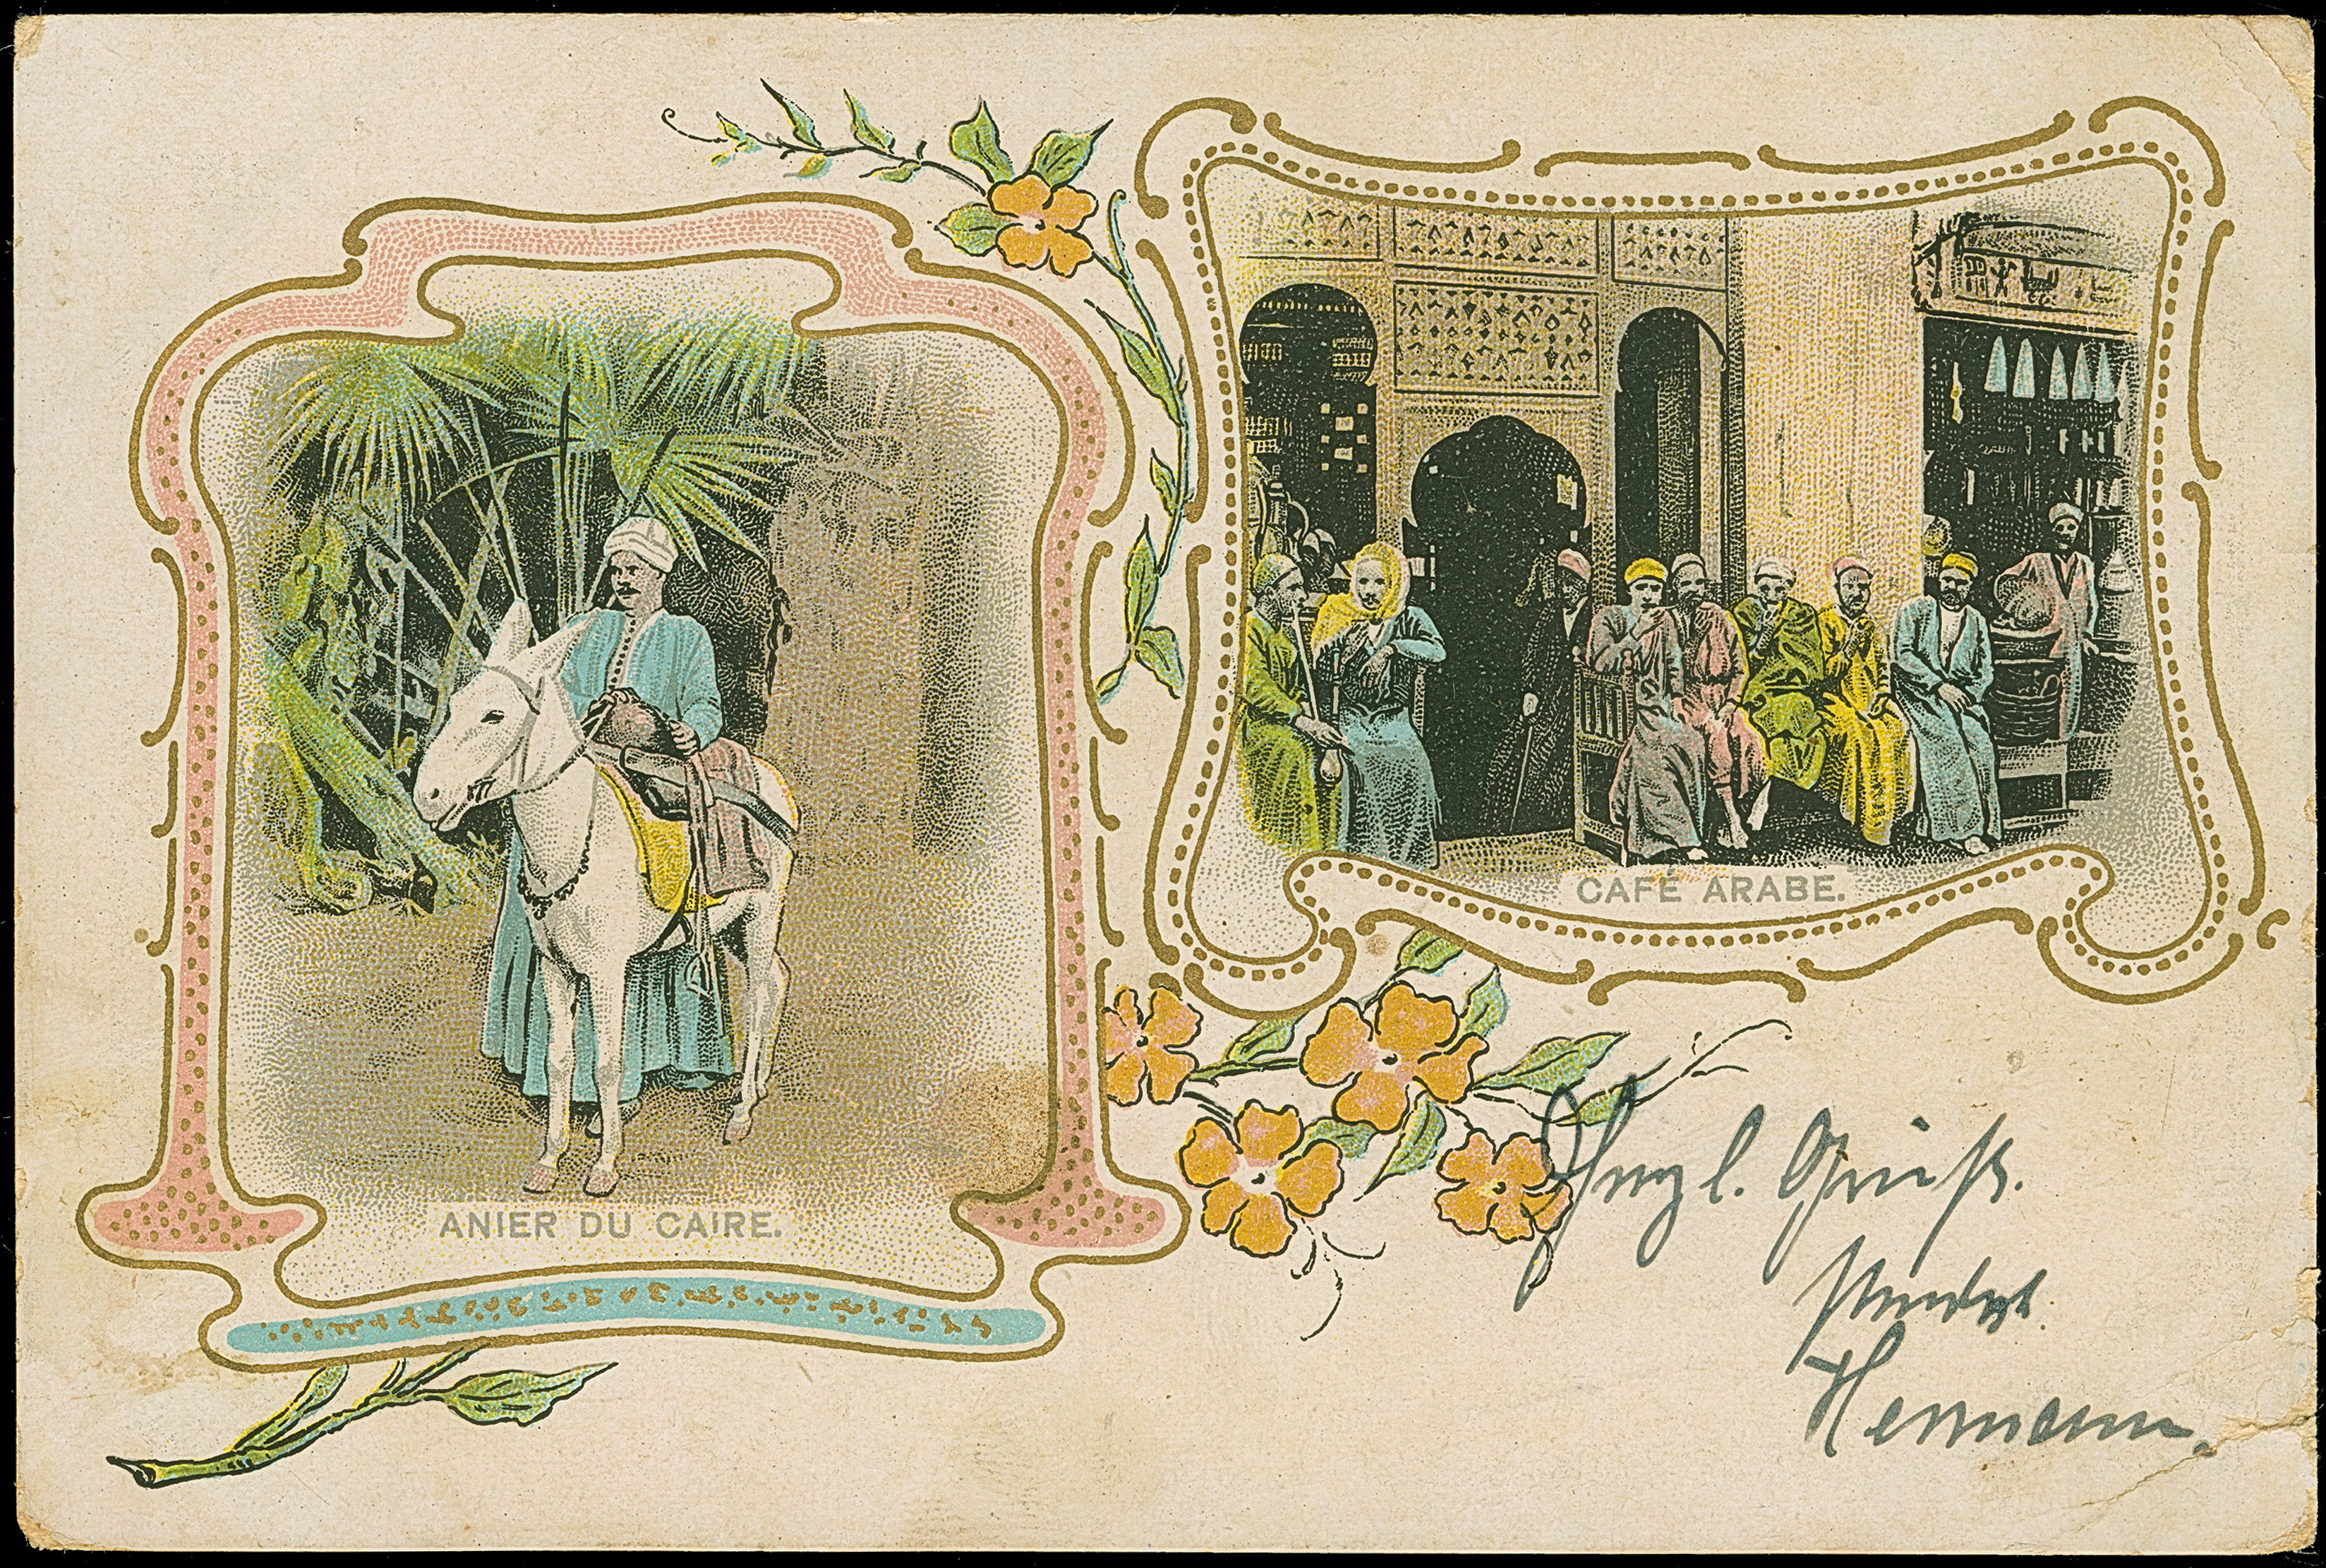 ANIER DU CAIRE.
CAFÉ ARABE.
Herzl. Gruß.
Hermann.